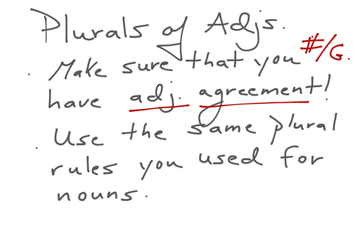 Plurals of Adjs.
#/G.
. Make sure that you
have adj. agreement!
. Use the same plural
rules you used for
nouns.